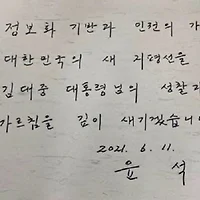 정보화 기반과 인권의 가
대한민국의 새 지평선을
김대중 대통령님의 성찰과
가르침을 깊이 새기겠습니
2021. 6. 11.
윤 석